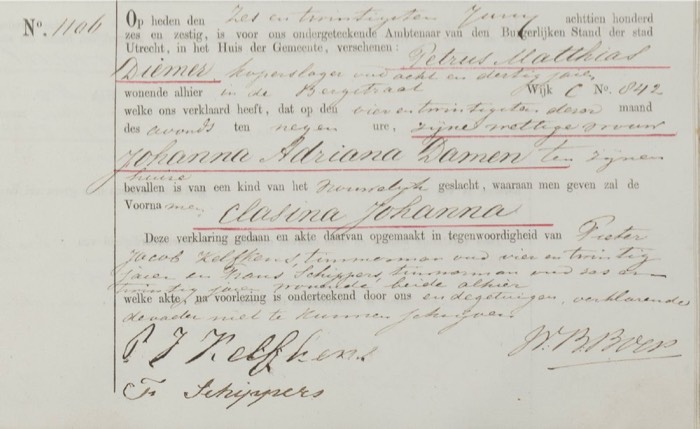 No. 1106
Op heden den Zes en twintigsten Juny achttien honderd
zes en zestig, is voor ons ondergeteekende Ambtenaar van den Burgerlijken Stand der stad
Utrecht, in het Huis der Gemeente, verschenen: Petrus Matthias
Diemer, koperslager oud acht en dertig jaren
wonende alhier in de Bergstraat Wijk C No. 842
welke ons verklaard heeft, dat op den vier en twintigsten dezer maand
des avonds ten negen ure, zijne wettige vrouw
Johanna Adriana Damen ten zijnen
huize
bevallen is van een kind van het vrouwelijk geslacht, waaraan men geven zal de
Voornamen, Clasina Johanna
Deze verklaring gedaan en akte daarvan opgemaakt in tegenwoordigheid van Pieter
Jacob Kelfkens, timmerman oud vier en twintig
jaren en Frans Schippers, timmerman oud zes en
twintig jaren wonende beide alhier
welke akte, na voorlezing is onderteekend door ons en de getuigen, verklarende
de vader niet te kunnen schrijven
P J Kelfkens
Fs Schippers